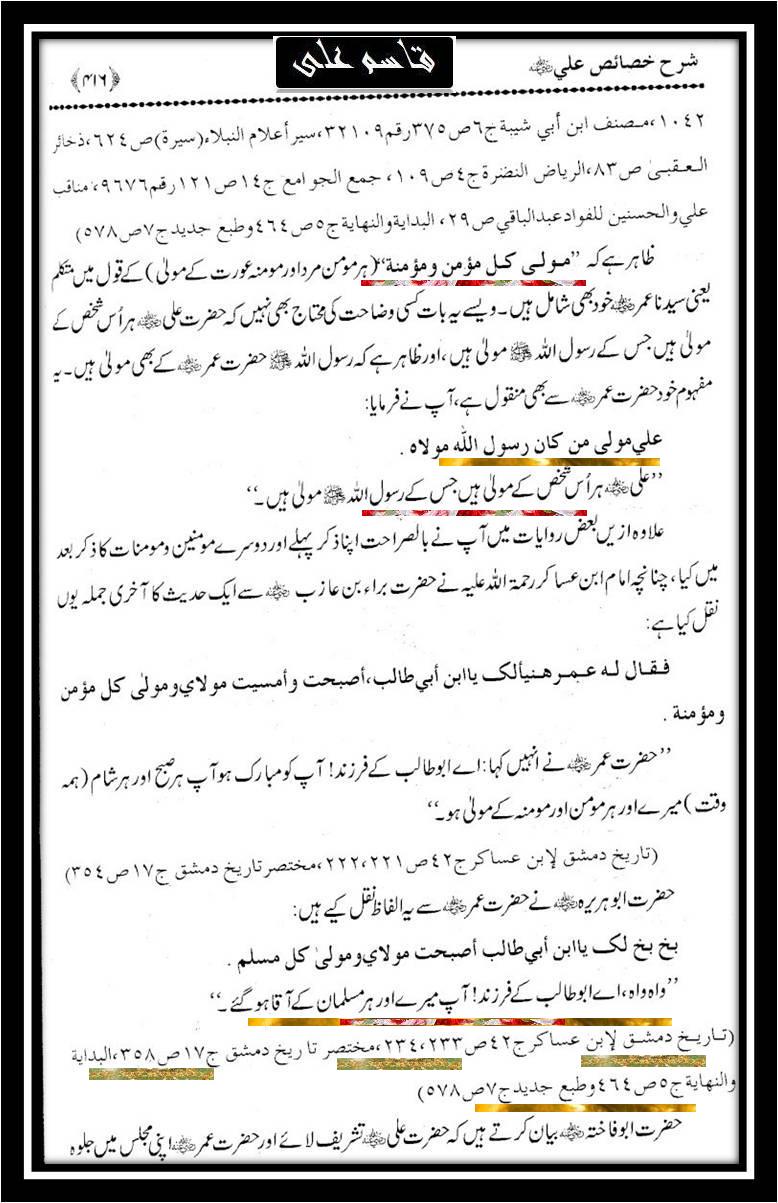 شرح خصائص علي رضی اللہ عنہ
قاسم علی
﴿٤١٦﴾
١٠٤٢، مصنف ابن أبي شيبة ج٦ص٣٧٥رقم٣٢١٠٩، سير أعلام النبلاء (سيرة)ص٦٢٤، ذخائر
العقبیٰ ص٨٣، الرياض النضرة ج٤ص١٠٩، جمع الجوامع ج١٤ص١٢١رقم٩٦٧٦، مناقب
علي والحسنين للفواد عبدالباقي ص٢٩، البداية والنهاية ج٥ص٤٦٤وطبع جديد ج٧ص٥٧٨)
ظاہر ہے کہ ”مولی کل مؤمن ومؤمنة“ (ہر مومن مرد اور مومنہ عورت کے مولیٰ) کے قول میں متکلم
یعنی سیدنا عمر رضی اللہ عنہ خود بھی شامل ہیں۔ ویسے یہ بات کسی وضاحت کی محتاج بھی نہیں کہ حضرت علی رضی اللہ عنہ ہر اُس شخص کے
مولیٰ ہیں جس کے رسول اللہ ﷺ مولیٰ ہیں، اور ظاہر ہے کہ رسول اللہ ﷺ حضرت عمر رضی اللہ عنہ کے بھی مولیٰ ہیں۔ یہ
مفہوم خود حضرت عمر رضی اللہ عنہ سے بھی منقول ہے، آپ نے فرمایا:
علي مولى من كان رسول الله مولاه .
”علی رضی اللہ عنہ ہر اُس شخص کے مولیٰ ہیں جس کے رسول اللہ ﷺ مولیٰ ہیں۔“
علاوہ ازیں بعض روایات میں آپ نے بالصراحت اپنا ذکر پہلے اور دوسرے مومنین و مومنات کا ذکر بعد
میں کیا، چنانچہ امام ابن عساکر رحمۃ اللہ علیہ نے حضرت براء بن عازب رضی اللہ عنہ سے ایک حدیث کا آخری جملہ یوں
نقل کیا ہے:
فقال له عمر هنيألک يا ابن أبي طالب، أصبحت وأمسيت مولاي ومولیٰ کل مؤمن
ومؤمنة .
”حضرت عمر رضی اللہ عنہ نے انہیں کہا: اے ابو طالب کے فرزند! آپ کو مبارک ہو آپ ہر صبح اور ہر شام (ہمہ
وقت) میرے اور ہر مومن اور مومنہ کے مولیٰ ہو۔“
(تاريخ دمشق لإبن عساكر ج٤٢ص٢٢١،٢٢٢، مختصر تاريخ دمشق ج١٧ص٣٥٤)
حضرت ابو ہریرہ رضی اللہ عنہ نے حضرت عمر رضی اللہ عنہ سے یہ الفاظ نقل کیے ہیں:
بخ بخ لک يا ابن أبي طالب أصبحت مولاي ومولیٰ کل مسلم .
”واہ واہ، اے ابو طالب کے فرزند! آپ میرے اور ہر مسلمان کے آقا ہو گئے۔“
(تاريخ دمشق لإبن عساكر ج٤٢ص٢٣٣،٢٣٤، مختصر تاريخ دمشق ج١٧ص٣٥٨، البداية
والنهاية ج٥ص٤٦٤وطبع جديد ج٧ص٥٧٨)
حضرت ابو فاختہ رضی اللہ عنہ بیان کرتے ہیں کہ حضرت علی رضی اللہ عنہ تشریف لائے اور حضرت عمر رضی اللہ عنہ اپنی مجلس میں جلوہ